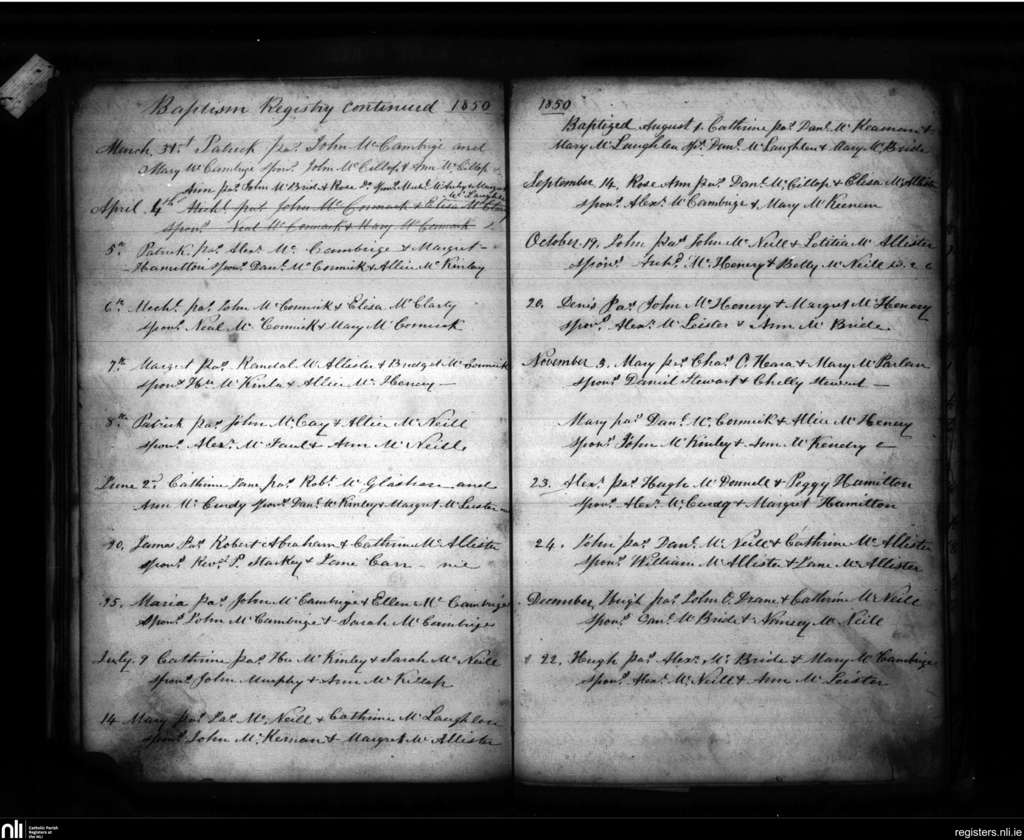 Baptism Registry continued 1850
March 31st Patrick pas John McCambrige and
Mary McCambrige spons John McCillop & Ann McCillop &
Ann pas John McBride & Rose Do spons Mich. & Margret
McLaughlin
April 4th Michl pas John McCormick & Elisa McClarty
spons Neal McCormick & Mary McCormick
5th Patrick pas Alexr Mc Cambrige & Margret
Hamilton spons Danl McCormick & Allice McKinley
6th Michl pas John McCormick & Elisa McClarty
spons Neal Mc Cormick & Mary McCormick
7th Margret pas Randal McAllister & Bridget McCormick
spons Hu McKinla & Allice Mc Henery
8th Patrick pas John McCay & Allice McNeill
spons Alexr McFaul & Ann McNeill
June 2d Cathrine Jane pas Robt McGlashan and
Ann McCurdy spons Danl McKinley & Margret McLeister
20. James Pas Robert Abraham & Cathrine McAllister
spons Revd P. Starkey & Jane Carr
25. Maria pas John McCambrige & Ellen McCambrige
Spons John McCambrige & Sarah McCambriges
July. 9 Cathrine pas Hu McKinley & Sarah McNeill
spons John Murphy & Ann McKillop
14 Mary pas Pat McNeill & Cathrine McLaughlen
spons John McKernan & Margret McAllister
1850
Baptized August 1. Cathrine pas Danl McKeaman &
Mary McLaughlen sps Danl McLaughlen & Mary McBride
September 14. Rose Ann pas Danl McCillop & Elisa McAllister
spons Alexr McCambrige & Mary McKeenem
October 19. John pas John McNeill & Letitia McAllister
spons Archd McHenery & Betty McNeill
20. Denis Pas John McHenery & Margret McHenery
spons Alexr McLeister & Ann McBride
November 3. Mary pas Chas O. Hara & Mary McParlan
spons Daniel Stewart & Chelly Stewart
Mary pas Danl McCormick & Allice McHenery
spons John McKinley & Ann McKendry
23. Alexr pas Hugh McDonnell & Peggy Hamilton
spons Alexr McCurdy & Margret Hamilton
24. John pas Danl McNeill & Cathrine McAllister
spons William McAllister & Jane McAllister
December, Hugh pas John O. Drane & Cathrine McNeill
spons Danl McBride & Nancey McNeill
22. Hugh pas Alexr McBride & Mary McCambrige
spons Alexr McNeill & Ann McLeister
nli
Catholic Parish
Registers at
the NLI
registers.nli.ie